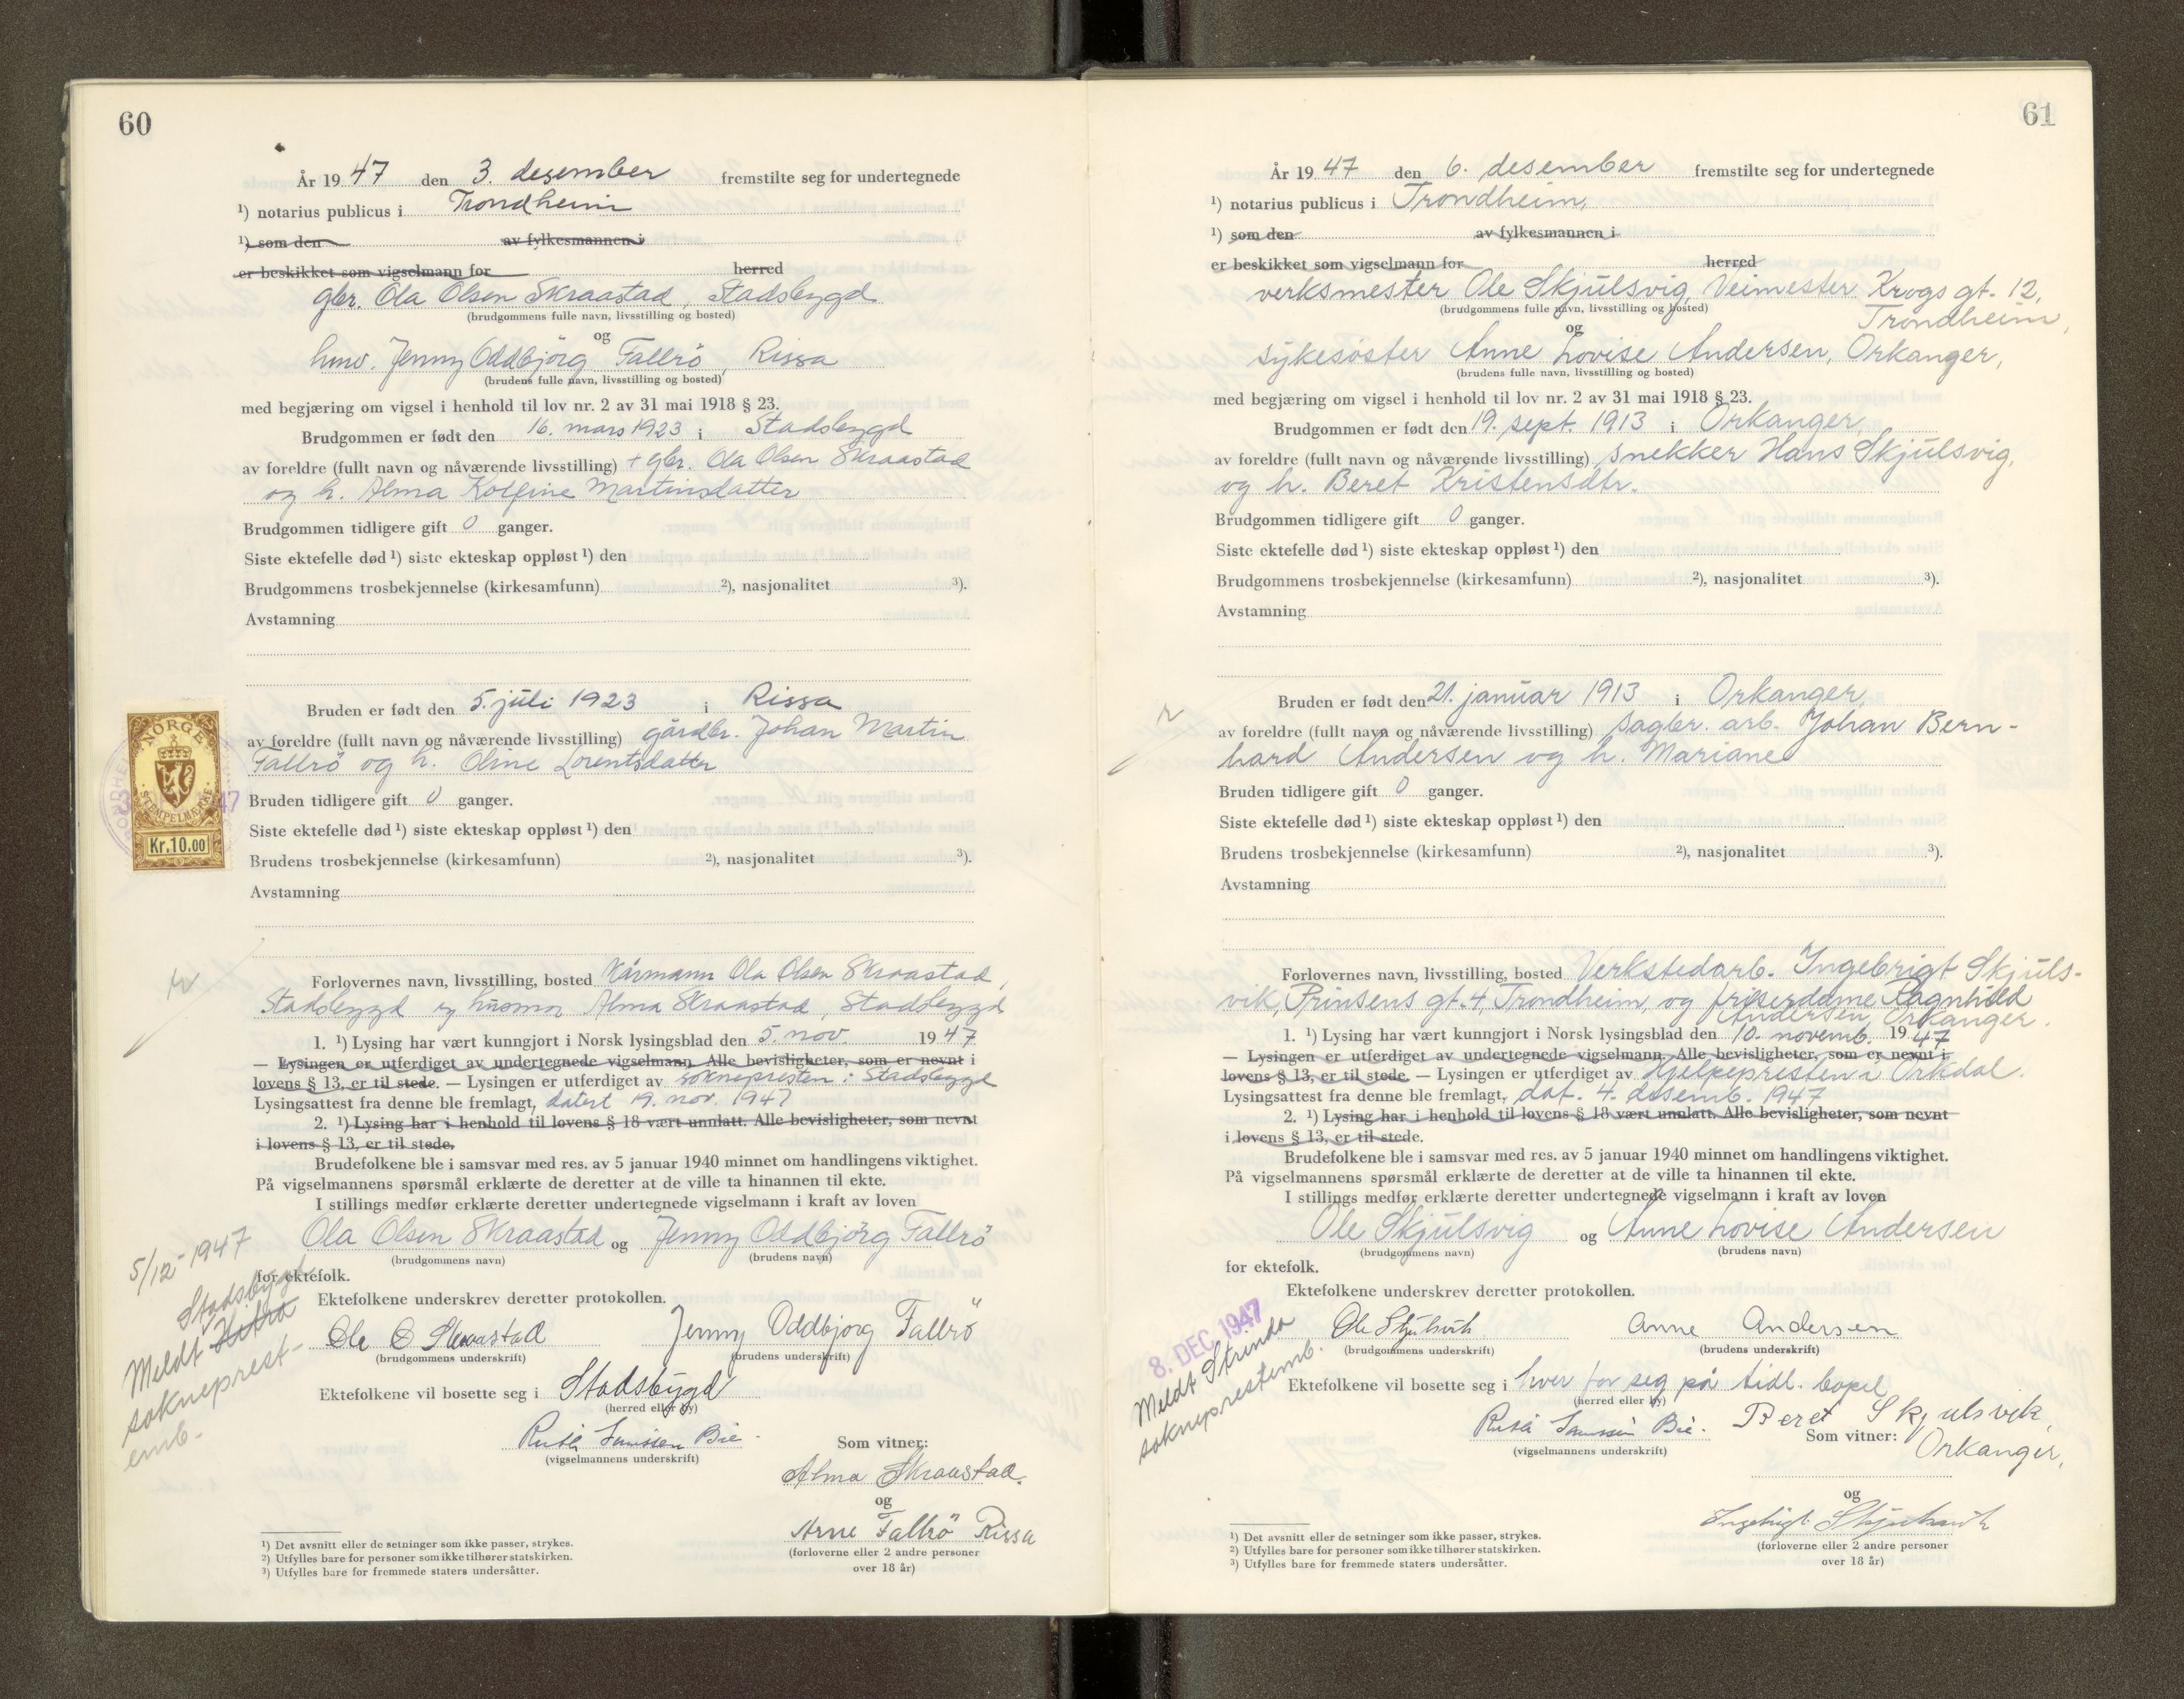 60
År 1947 den 3. desember fremstilte seg for undertegnede
¹) notarius publicus i Trondheim
¹) som den av fylkesmannen i
er beskikket som vigselmann for herred
gbr. Ola Olsen Skraastad, Stadsbygd
(brudgommens fulle navn, livsstilling og bosted)
og
hmv. Jenny Oddbjörg Fallrö, Rissa
(brudens fulle navn, livsstilling og bosted)
med begjæring om vigsel i henhold til lov nr. 2 av 31 mai 1918 § 23.
Brudgommen er født den 16. mars 1923 i Stadsbygd
av foreldre (fullt navn og nåværende livsstilling) + gbr. Ola Olsen Skraastad
og h. Alma Kolfine Martinsdatter
Brudgommen tidligere gift 0 ganger.
Siste ektefelle død ¹) siste ekteskap oppløst ¹) den
Brudgommens trosbekjennelse (kirkesamfunn) ²), nasjonalitet ³).
Avstamning
Bruden er født den 5. juli 1923 i Rissa
av foreldre (fullt navn og nåværende livsstilling) gårdbr. Johan Martin
Fallrö og h. Oline Lorentsdatter
NORGE
STEMPELMERKE
Kr.10.00
Bruden tidligere gift 0 ganger.
Siste ektefelle død ¹) siste ekteskap oppløst ¹) den
Brudens trosbekjennelse (kirkesamfunn) ²), nasjonalitet ³).
Avstamning
Forlovernes navn, livsstilling, bosted Kårmann Ola Olsen Skraastad,
Stadsbygd og husmor Alma Skraastad, Stadsbygd
1. ¹) Lysing har vært kunngjort i Norsk lysingsblad den 5. nov. 1947
— Lysingen er utferdiget av undertegnede vigselmann. Alle bevisligheter, som er nevnt i
lovens § 13, er til stede. — Lysingen er utferdiget av soknepresten i Stadsbygd
Lysingsattest fra denne ble fremlagt, datert 19. nov. 1947
2. ¹) Lysing har i henhold til lovens § 18 vært unnlatt. Alle bevisligheter, som nevnt
i lovens § 13, er til stede.
Brudefolkene ble i samsvar med res. av 5 januar 1940 minnet om handlingens viktighet.
På vigselmannens spørsmål erklærte de deretter at de ville ta hinannen til ekte.
I stillings medfør erklærte deretter undertegnede vigselmann i kraft av loven
Ola Olsen Skraastad og Jenny Oddbjörg Fallrö
(brudgommens navn) (brudens navn)
for ektefolk.
5/12-1947
Stadsbygd
Meldt Hitra
sokneprest-
emb.
Ektefolkene underskrev deretter protokollen.
Ole O Skraastad Jenny Oddbjørg Fallrö
(brudgommens underskrift) (brudens underskrift)
Ektefolkene vil bosette seg i Stadsbygd
(herred eller by)
(vigselmannens underskrift)
Som vitner:
Alma Skraastad.
og
Arne Fallrö Rissa
(forloverne eller 2 andre personer
over 18 år)
¹) Det avsnitt eller de setninger som ikke passer, strykes.
²) Utfylles bare for personer som ikke tilhører statskirken.
³) Utfylles bare for fremmede staters undersåtter.
61
År 1947 den 6. desember fremstilte seg for undertegnede
¹) notarius publicus i Trondheim,
¹) som den av fylkesmannen i
er beskikket som vigselmann for herred
verksmester Ole Skjulsvig, Veimester Krogs gt. 12,
(brudgommens fulle navn, livsstilling og bosted)
Trondheim,
og
sykesøster Anne Lovise Andersen, Orkanger,
(brudens fulle navn, livsstilling og bosted)
med begjæring om vigsel i henhold til lov nr. 2 av 31 mai 1918 § 23.
Brudgommen er født den 19. sept. 1913 i Orkanger,
av foreldre (fullt navn og nåværende livsstilling) snekker Hans Skjulsvig,
og h. Beret Kristensdtr.
Brudgommen tidligere gift 0 ganger.
Siste ektefelle død ¹) siste ekteskap oppløst ¹) den
Brudgommens trosbekjennelse (kirkesamfunn) ²), nasjonalitet ³).
Avstamning
Bruden er født den 21. januar 1913 i Orkanger,
av foreldre (fullt navn og nåværende livsstilling) sagbr. arb. Johan Bern-
hard Andersen og h. Mariane
Bruden tidligere gift 0 ganger.
Siste ektefelle død ¹) siste ekteskap oppløst ¹) den
Brudens trosbekjennelse (kirkesamfunn) ²), nasjonalitet ³).
Avstamning
Forlovernes navn, livsstilling, bosted Verkstedarb. Ingebrigt Skjuls-
vik, Prinsens gt. 4, Trondheim, og friserdame Ragnhild
Andersen, Orkanger.
1. ¹) Lysing har vært kunngjort i Norsk lysingsblad den 10. novemb. 1947
— Lysingen er utferdiget av undertegnede vigselmann. Alle bevisligheter, som er nevnt i
lovens § 13, er til stede. — Lysingen er utferdiget av Hjelpepresten i Orkdal.
Lysingsattest fra denne ble fremlagt, dat. 4. desemb. 1947
2. ¹) Lysing har i henhold til lovens § 18 vært unnlatt. Alle bevisligheter, som nevnt
i lovens § 13, er til stede.
Brudefolkene ble i samsvar med res. av 5 januar 1940 minnet om handlingens viktighet.
På vigselmannens spørsmål erklærte de deretter at de ville ta hinannen til ekte.
I stillings medfør erklærte deretter undertegnede vigselmann i kraft av loven
Ole Skjulsvig og Anne Lovise Andersen
(brudgommens navn) (brudens navn)
for ektefolk.
Ektefolkene underskrev deretter protokollen.
8. DEC. 1947
Meldt Strinda
sokneprestemb.
Ole Skjulsvik Anne Andersen
(brudgommens underskrift) (brudens underskrift)
Ektefolkene vil bosette seg i hver for seg på tidl. bopel
(herred eller by)
(vigselmannens underskrift)
Beret Skjulsvik,
Som vitner:
Orkanger,
og
Ingebrigt Skjulsvik
(forloverne eller 2 andre personer
over 18 år)
¹) Det avsnitt eller de setninger som ikke passer, strykes.
²) Utfylles bare for personer som ikke tilhører statskirken.
³) Utfylles bare for fremmede staters undersåtter.